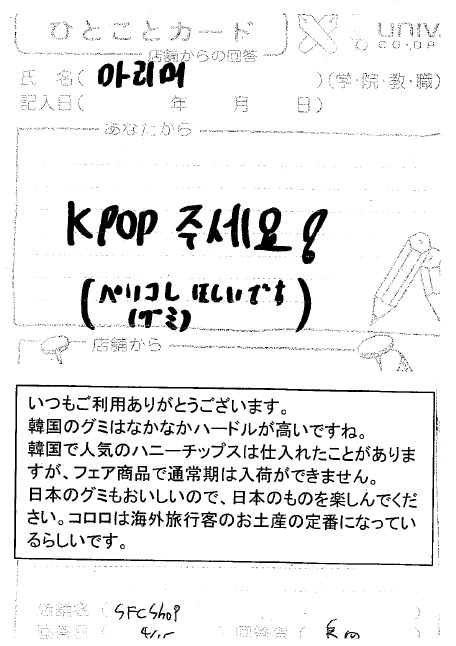 ひとことカード
店舗からの回答
UNIV.
CO-OP
氏 名( 마리머 )(学・院・教・職)
記入日( 年 月 日)
あなたから
KPOP 주세요!
(ペリコレ ほしいです)
(グミ)
店舗から
いつもご利用ありがとうございます。
韓国のグミはなかなかハードルが高いですね。
韓国で人気のハニーチップスは仕入れたことがありま
すが、フェア商品で通常期は入荷ができません。
日本のグミもおいしいので、日本のものを楽しんでくだ
さい。コロロは海外旅行客のお土産の定番になってい
るらしいです。
店舗名( SFC Shop )
回答日( 4/15 回答者(